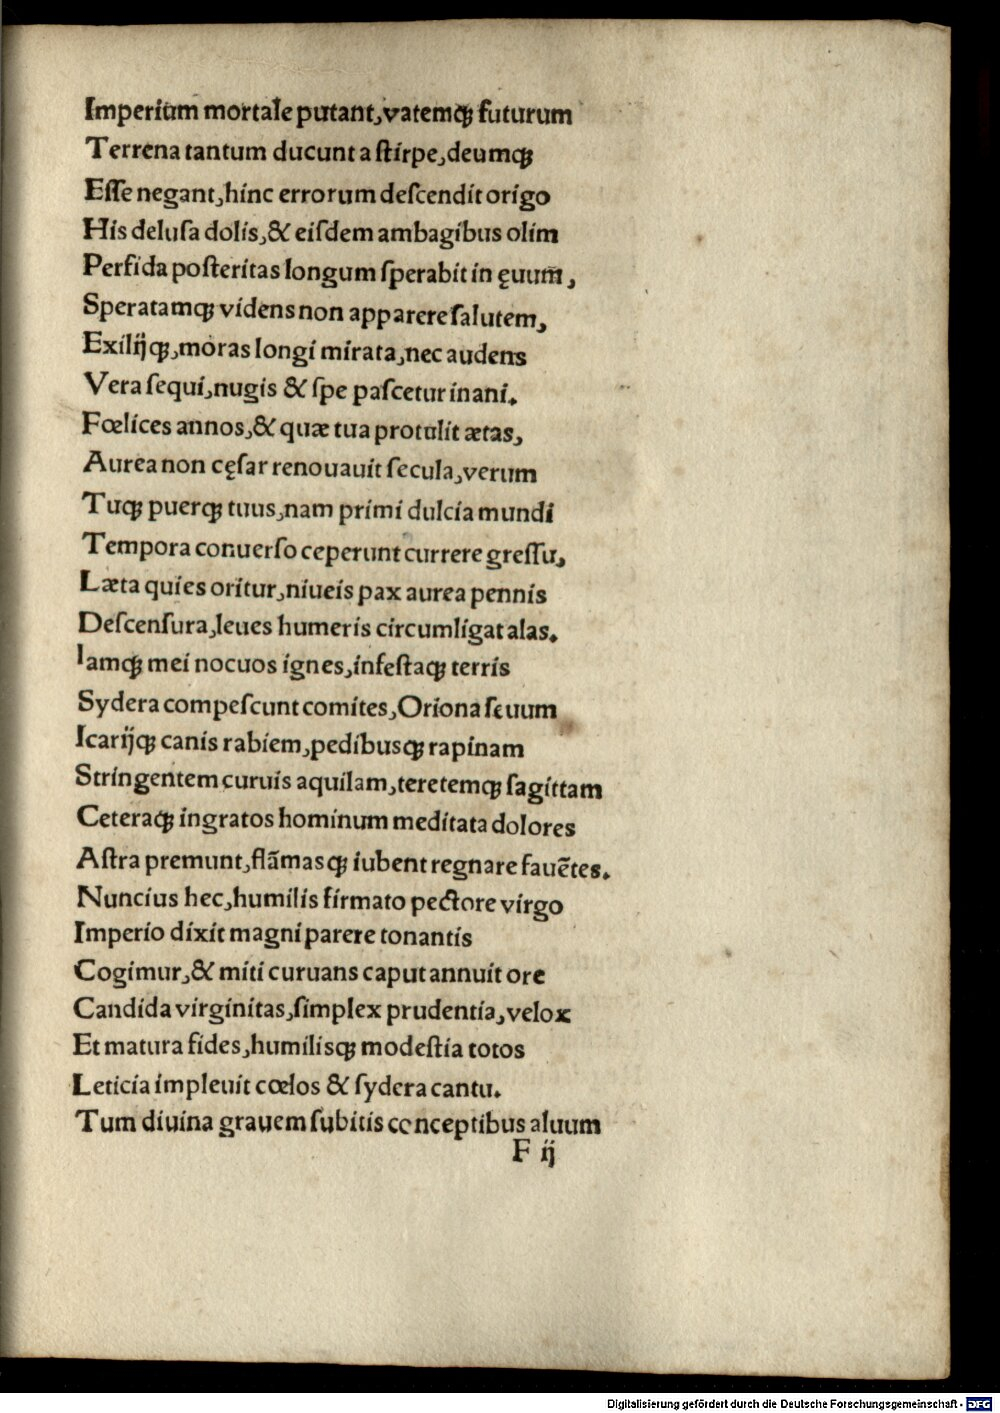 Imperium mortale putant, vatemqꝫ futurum
Terrena tantum ducunt a ſtirpe, deumqꝫ
Eſſe negant, hinc errorum deſcendit origo
His deluſa dolis, & eiſdem ambagibus olim
Perfida poſteritas longum ſperabit in ęuum̄,
Speratamqꝫ videns non apparere ſalutem,
Exilijqꝫ, moras longi mirata, nec audens
Vera ſequi, nugis & ſpe paſcetur inani.
Fœlices annos, & quæ tua protulit ætas,
Aurea non cęſar renouauit ſecula, verum
Tuqꝫ puerqꝫ tuus, nam primi dulcia mundi
Tempora conuerſo ceperunt currere greſſu,
Læta quies oritur, niueis pax aurea pennis
Deſcenſura, leues humeris circumligat alas.
Iamqꝫ mei nocuos ignes, infeſtaqꝫ terris
Sydera compeſcunt comites, Oriona ſeuum
Icarijqꝫ canis rabiem, pedibusqꝫ rapinam
Stringentem curuis aquilam, teretemqꝫ ſagittam
Ceteraqꝫ ingratos hominum meditata dolores
Aſtra premunt, flāmasqꝫ iubent regnare fauētes.
Nuncius hec, humilis firmato pectore virgo
Imperio dixit magni parere tonantis
Cogimur, & miti curuans caput annuit ore
Candida virginitas, ſimplex prudentia, velox
Et matura fides, humilisqꝫ modeſtia totos
Leticia impleuit cœlos & ſydera cantu.
Tum diuina grauem ſubitis conceptibus aluum
F ij
Digitalisierung gefördert durch die Deutsche Forschungsgemeinschaft - DFG